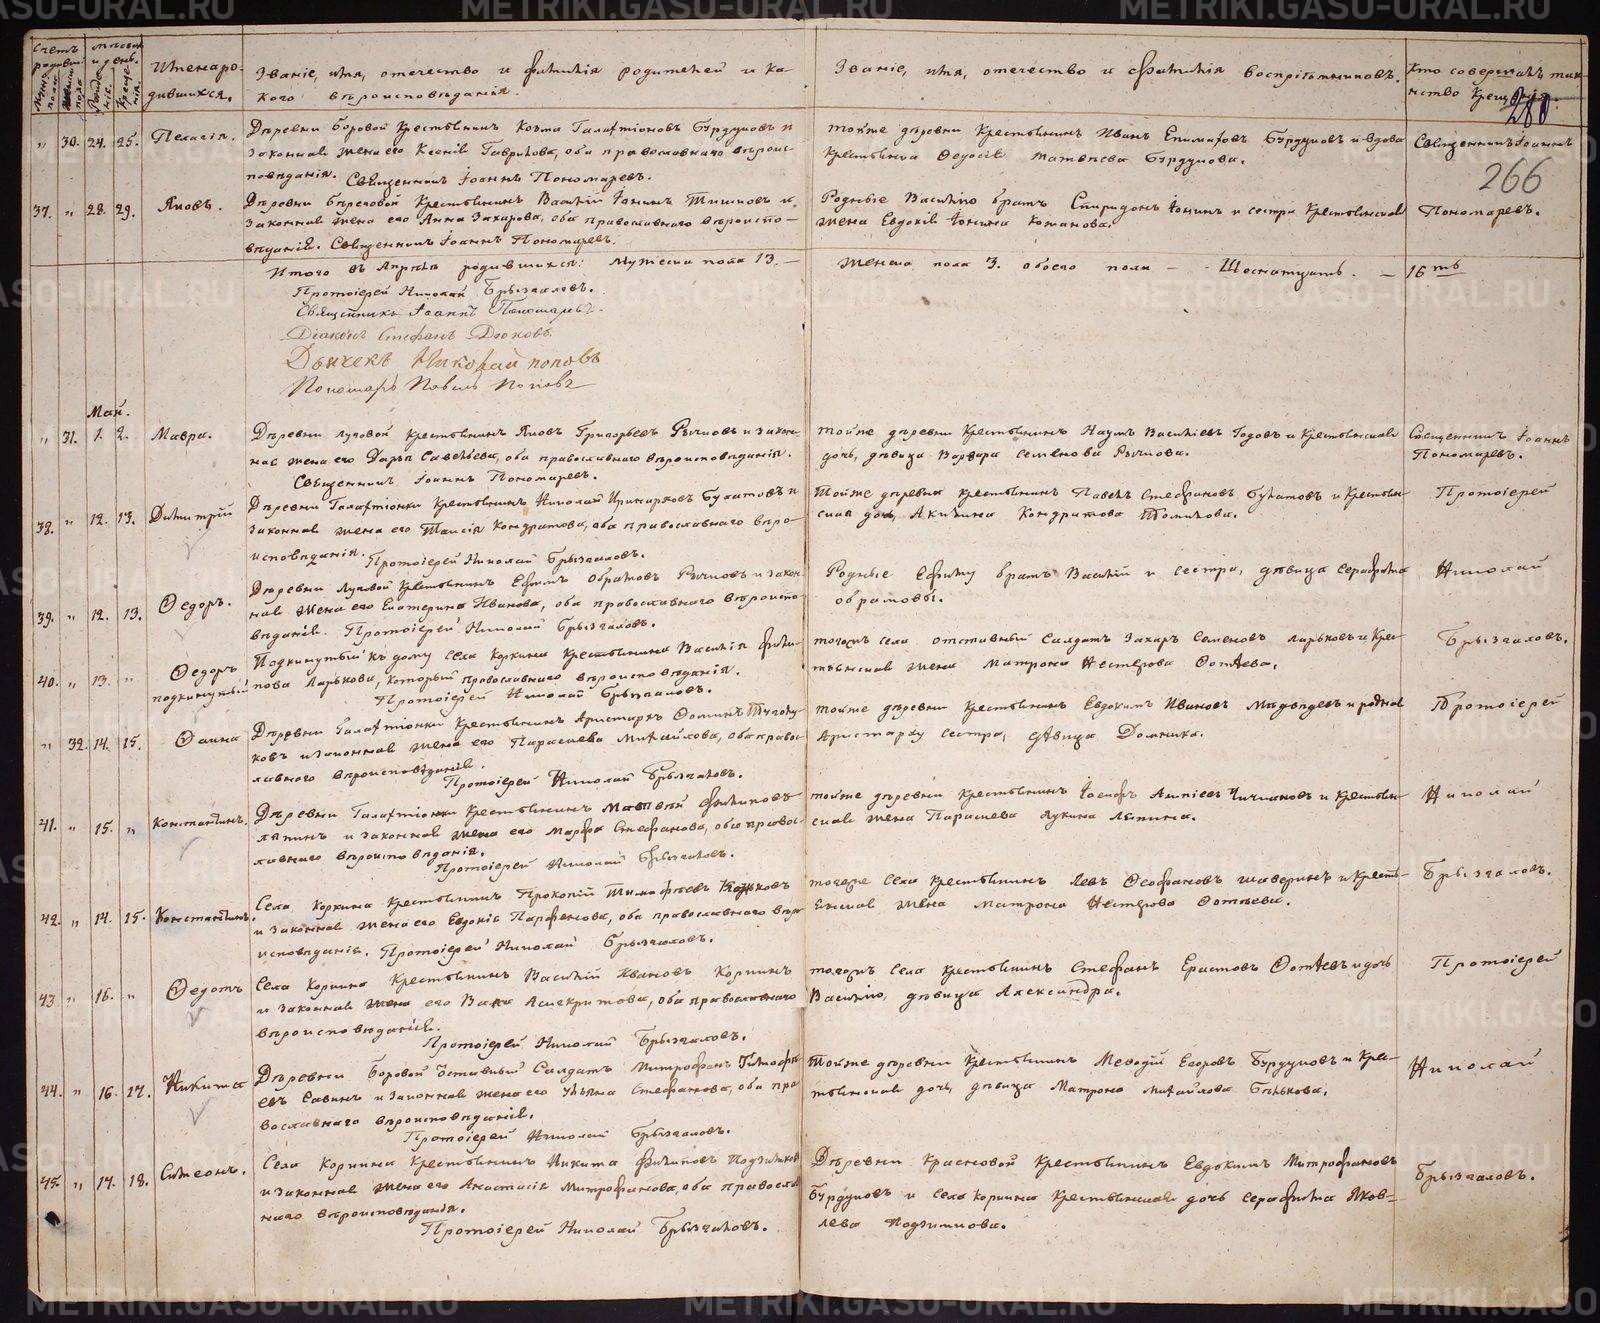 METRIKI.GASO-URAL.RU
Счетъ родивш.
мѣсяцъ и день.
Имена родившихся.
Званіе, имя, отечество и фамилія родителей и какого вѣроисповѣданія.
Званіе, имя, отечество и фамилія воспріемниковъ.
Кто совершалъ таинство крещенія.
266
„ 30. 24. 25. Пелагія.
Деревни Боровой крестьянинъ Козма Галактіоновъ Бурдуковъ и
законная жена его Ксенія Гаврилова, оба православнаго вѣроис-
повѣданія. Священникъ Іоаннъ Пономаревъ.
тойже деревни крестьянинъ Иванъ Епимаховъ Бурдуковъ и вдова
крестьянка Ѳедосія Матвѣева Бурдукова.
Священникъ Іоаннъ
37. „ 28. 29. Яковъ.
законная жена его Анна Захарова, оба православнаго вѣроиспо-
вѣданія. Священникъ Іоаннъ Пономаревъ.
Родные Василію братъ Спиридонъ Іонинъ и сестра крестьянская
жена Евдокія Іонина
Пономаревъ.
Итого въ Апрѣлѣ родившихся: мужеска пола 13. —
женска пола 3. обоего пола — Шестнатцать. — 16ть
Протоіерей Николай Брызгаловъ.
Священникъ Іоаннъ Пономаревъ.
Діаконъ Стефанъ Дюковъ
Дьячекъ Николай Поповъ
Пономарь Павелъ Поповъ
Май.
„ 31. 1. 2. Мавра.
Деревни Луговой крестьянинъ Яковъ Григорьевъ Рычковъ и закон-
ная жена его Дарья Савельева, оба православнаго вѣроисповѣданія.
Священникъ Іоаннъ Пономаревъ.
тойже деревни крестьянинъ Наумъ Василіевъ Годовъ и крестьянская
дочь, дѣвица Варвара Семенова Рычкова.
Священникъ Іоаннъ
Пономаревъ.
38. „ 12. 13. Димитрій
Деревни Галактіонки крестьянинъ Николай Иринарховъ Булатовъ и
законная жена его Таисія Кондратова, оба православнаго вѣро-
исповѣданія. Протоіерей Николай Брызгаловъ.
Тойже деревни крестьянинъ Павелъ Стефановъ Булатовъ и крестьян-
ская дочь, Акилина Кондратова
Протоіерей
39. „ 12. 13. Ѳедоръ.
Деревни Луговой крестьянинъ Ефимъ Рычковъ и закон-
ная жена его Екатерина Иванова, оба православнаго вѣроиспо-
вѣданія. Протоіерей Николай Брызгаловъ.
Родные Ефиму братъ Василій и сестра, дѣвица Серафима
Николай
40. „ 13. „ Ѳедоръ подкинутый
Подкинутый къ дому села Коркина крестьянина Василія Фили-
пова Ларькова, который православнаго вѣроисповѣданія.
Протоіерей Николай Брызгаловъ.
тогожъ села отставный Салдатъ Захаръ Семеновъ Ларьковъ и крес-
тьянская жена Матрона Нестерова Фотѣева.
Брызгаловъ.
„ 32. 14. 15. Фаина
Деревни Галактіонки крестьянинъ Аристархъ Фоминъ
и законная жена его Параскева Михайлова, оба право-
славнаго вѣроисповѣданія.
Протоіерей Николай Брызгаловъ.
тойже деревни крестьянинъ Евдокимъ Ивановъ Медвѣдевъ и родная
Аристарху сестра, дѣвица Домника.
Протоіерей
41. „ 15. „ Константинъ.
Деревни Галактіонки крестьянинъ Матвѣй Филиповъ
Ляпинъ и законная жена его Марфа Стефанова, оба право-
славнаго вѣроисповѣданія.
Протоіерей Николай Брызгаловъ.
тойже деревни крестьянинъ Іосифъ и крестьян-
ская жена Параскева Лукина Ляпина.
Николай
42. „ 14. 15. Константинъ.
Села Коркина крестьянинъ Прокопій Тимофѣевъ
и законная жена его Евдокія Парфенова, оба православнаго вѣро-
исповѣданія. Протоіерей Николай Брызгаловъ.
тогоже села крестьянинъ Левъ Ѳеофановъ и кресть-
янская жена Матрона Нестерова Фотѣева.
Брызгаловъ.
43 „ 16. „ Ѳедотъ
Села Коркина крестьянинъ Василій Ивановъ Коркинъ
и законная жена его Асинкритова, оба православнаго
вѣроисповѣданія.
Протоіерей Николай Брызгаловъ.
тогожъ села крестьянинъ Стефанъ Ерастовъ Фотѣевъ и дочь
Василію, дѣвица Александра.
Протоіерей
44. „ 16. 17. Никита
Деревни Боровой Отставный Салдатъ Митрофанъ Тимофѣ-
евъ Савинъ и законная жена его Ульяна Стефанова, оба пра-
вославнаго вѣроисповѣданія.
Протоіерей Николай Брызгаловъ.
Тойже деревни крестьянинъ Меѳодій Егоровъ Бурдуковъ и крес-
тьянская дочь, дѣвица Матрона Михайлова Бѣлькова.
Николай
45. „ 17. 18. Симеонъ.
Села Коркина крестьянинъ Никита Филиповъ
и законная жена его Анастасія Митрофанова, оба православ-
наго вѣроисповѣданія.
Протоіерей Николай Брызгаловъ.
Деревни Красновой крестьянинъ Евдокимъ Митрофановъ
Бурдуковъ и села Коркина крестьянская дочь Серафима Яков-
лева Подзимкова.
Брызгаловъ.